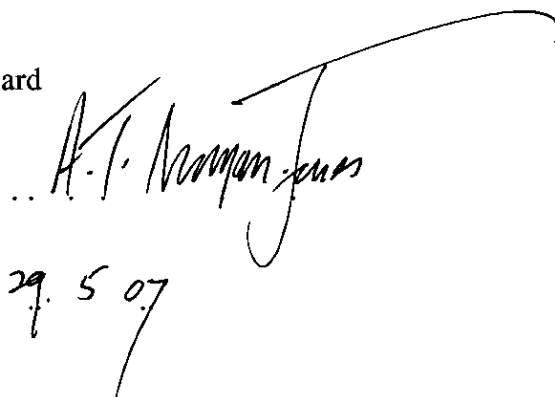 ard
.. A. T. Morgan-Jones
29. 5 07